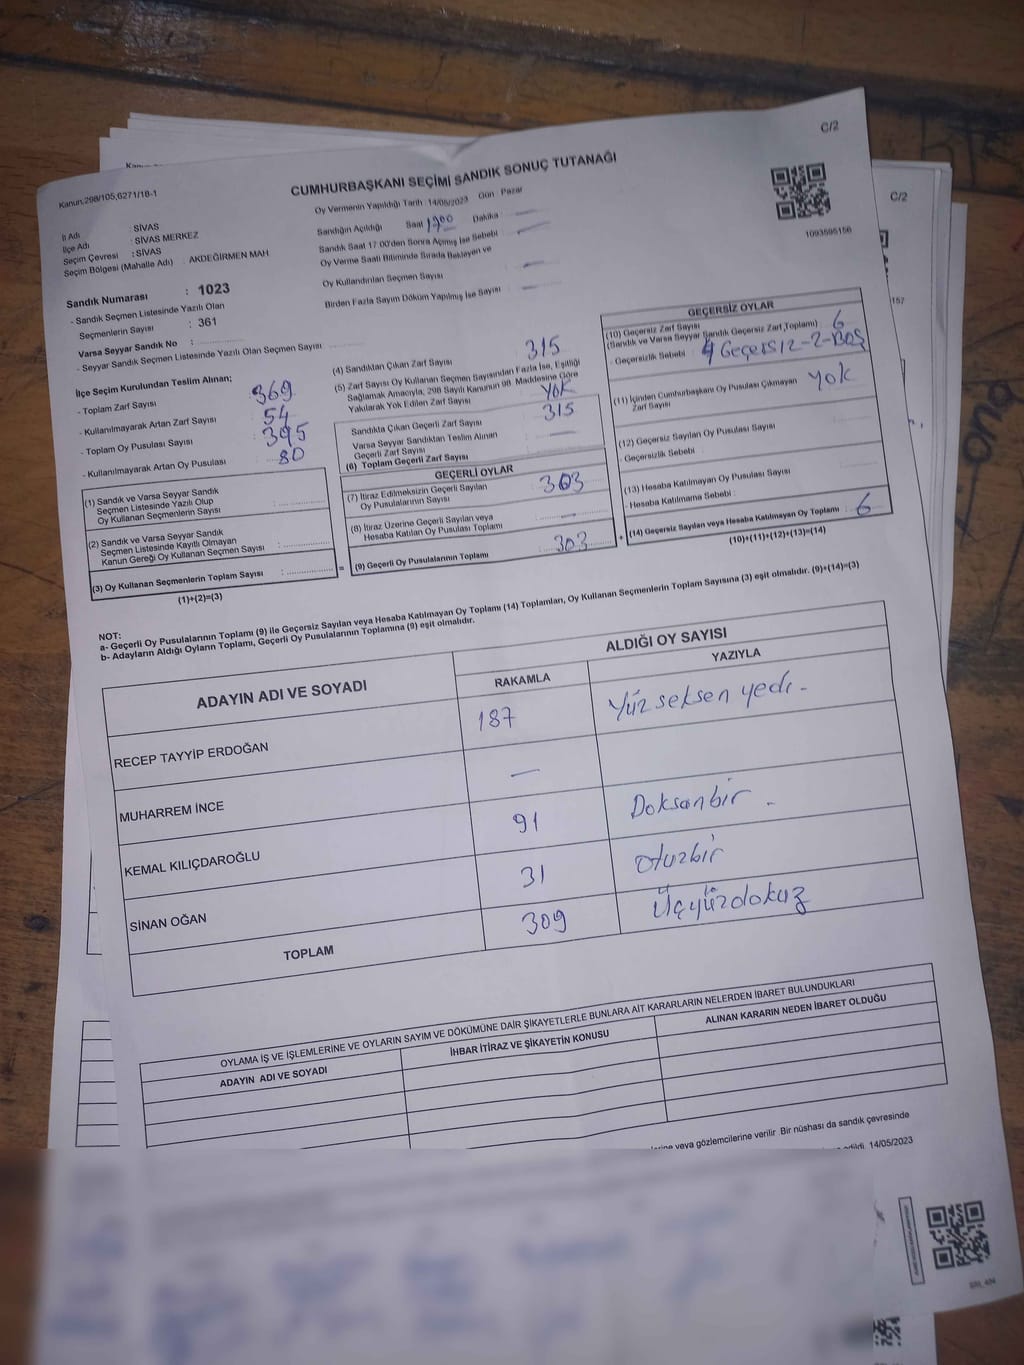 C/2
Kanun.298/105,6271/18-1
CUMHURBAŞKANI SEÇİMİ SANDIK SONUÇ TUTANAĞI
1093595156
İl Adı : SİVAS
İlçe Adı : SİVAS MERKEZ
Seçim Çevresi : SİVAS
Seçim Bölgesi (Mahalle Adı) : AKDEĞİRMEN MAH
Oy Vermenin Yapıldığı Tarih : 14/05/2023 Gün Pazar
Sandığın Açıldığı Saat 1700 Dakika —
Sandık Saat 17 00'den Sonra Açımış İse Sebebi —
Oy Verme Saati Bitiminde Sırada Bekleyen ve
Oy Kullandırılan Seçmen Sayısı —
Birden Fazla Sayım Döküm Yapılmış İse Sayısı —
Sandık Numarası : 1023
- Sandık Seçmen Listesinde Yazılı Olan
Seçmenlerin Sayısı : 361
Varsa Seyyar Sandık No :
- Seyyar Sandık Seçmen Listesinde Yazılı Olan Seçmen Sayısı
İlçe Seçim Kurulundan Teslim Alınan;
- Toplam Zarf Sayısı 369
- Kullanılmayarak Artan Zarf Sayısı 54
- Toplam Oy Pusulası Sayısı 395
- Kullanılmayarak Artan Oy Pusulası 80
(1) Sandık ve Varsa Seyyar Sandık
Seçmen Listesinde Yazılı Olup
Oy Kullanan Seçmenlerin Sayısı
(2) Sandık ve Varsa Seyyar Sandık
Seçmen Listesinde Kayıtlı Olmayan
Kanun Gereği Oy Kullanan Seçmen Sayısı
(3) Oy Kullanan Seçmenlerin Toplam Sayısı
(1)+(2)=(3)
(4) Sandıktan Çıkan Zarf Sayısı 315
(5) Zarf Sayısı Oy Kullanan Seçmen Sayısından Fazla İse, Eşitliği
Sağlamak Amacıyla, 298 Sayılı Kanunun 98. Maddesine Göre
Yakılarak Yok Edilen Zarf Sayısı YOK
Sandıkta Çıkan Geçerli Zarf Sayısı 315
Varsa Seyyar Sandıktan Teslim Alınan
Geçerli Zarf Sayısı —
(6) Toplam Geçerli Zarf Sayısı
GEÇERLİ OYLAR
(7) İtiraz Edilmeksizin Geçerli Sayılan
Oy Pusulalarının Sayısı 303
(8) İtiraz Üzerine Geçerli Sayılan veya
Hesaba Katılan Oy Pusulası Toplamı —
= (9) Geçerli Oy Pusulalarının Toplamı 303
GEÇERSİZ OYLAR
(10) Geçersiz Zarf Sayısı
(Sandık ve Varsa Seyyar Sandık Geçersiz Zarf Toplamı) 6
- Geçersizlik Sebebi : 4 Geçersiz-2-Boş
(11) İçinden Cumhurbaşkanı Oy Pusulası Çıkmayan
Zarf Sayısı Yok
(12) Geçersiz Sayılan Oy Pusulası Sayısı
- Geçersizlik Sebebi :
(13) Hesaba Katılmayan Oy Pusulası Sayısı
- Hesaba Katılmama Sebebi :
+ (14) Geçersiz Sayılan veya Hesaba Katılmayan Oy Toplamı 6
(10)+(11)+(12)+(13)=(14)
NOT:
a- Geçerli Oy Pusulalarının Toplamı (9) ile Geçersiz Sayılan veya Hesaba Katılmayan Oy Toplamı (14) Toplamları, Oy Kullanan Seçmenlerin Toplam Sayısına (3) eşit olmalıdır. (9)+(14)=(3)
b- Adayların Aldığı Oyların Toplamı, Geçerli Oy Pusulalarının Toplamına (9) eşit olmalıdır.
ADAYIN ADI VE SOYADI
ALDIĞI OY SAYISI
RAKAMLA YAZIYLA
RECEP TAYYİP ERDOĞAN 187 Yüz seksen yedi -
MUHARREM İNCE —
KEMAL KILIÇDAROĞLU 91 Doksanbir -
SİNAN OĞAN 31 otuzbir
TOPLAM 309 Üçyüzdokuz
OYLAMA İŞ VE İŞLEMLERİNE VE OYLARIN SAYIM VE DÖKÜMÜNE DAİR ŞİKAYETLERLE BUNLARA AİT KARARLARIN NELERDEN İBARET BULUNDUKLARI
ADAYIN ADI VE SOYADI İHBAR İTİRAZ VE ŞİKAYETİN KONUSU ALINAN KARARIN NEDEN İBARET OLDUĞU
veya gözlemcilerine verilir .Bir nüshası da sandık çevresinde
edildi. 14/05/2023
C/2
157